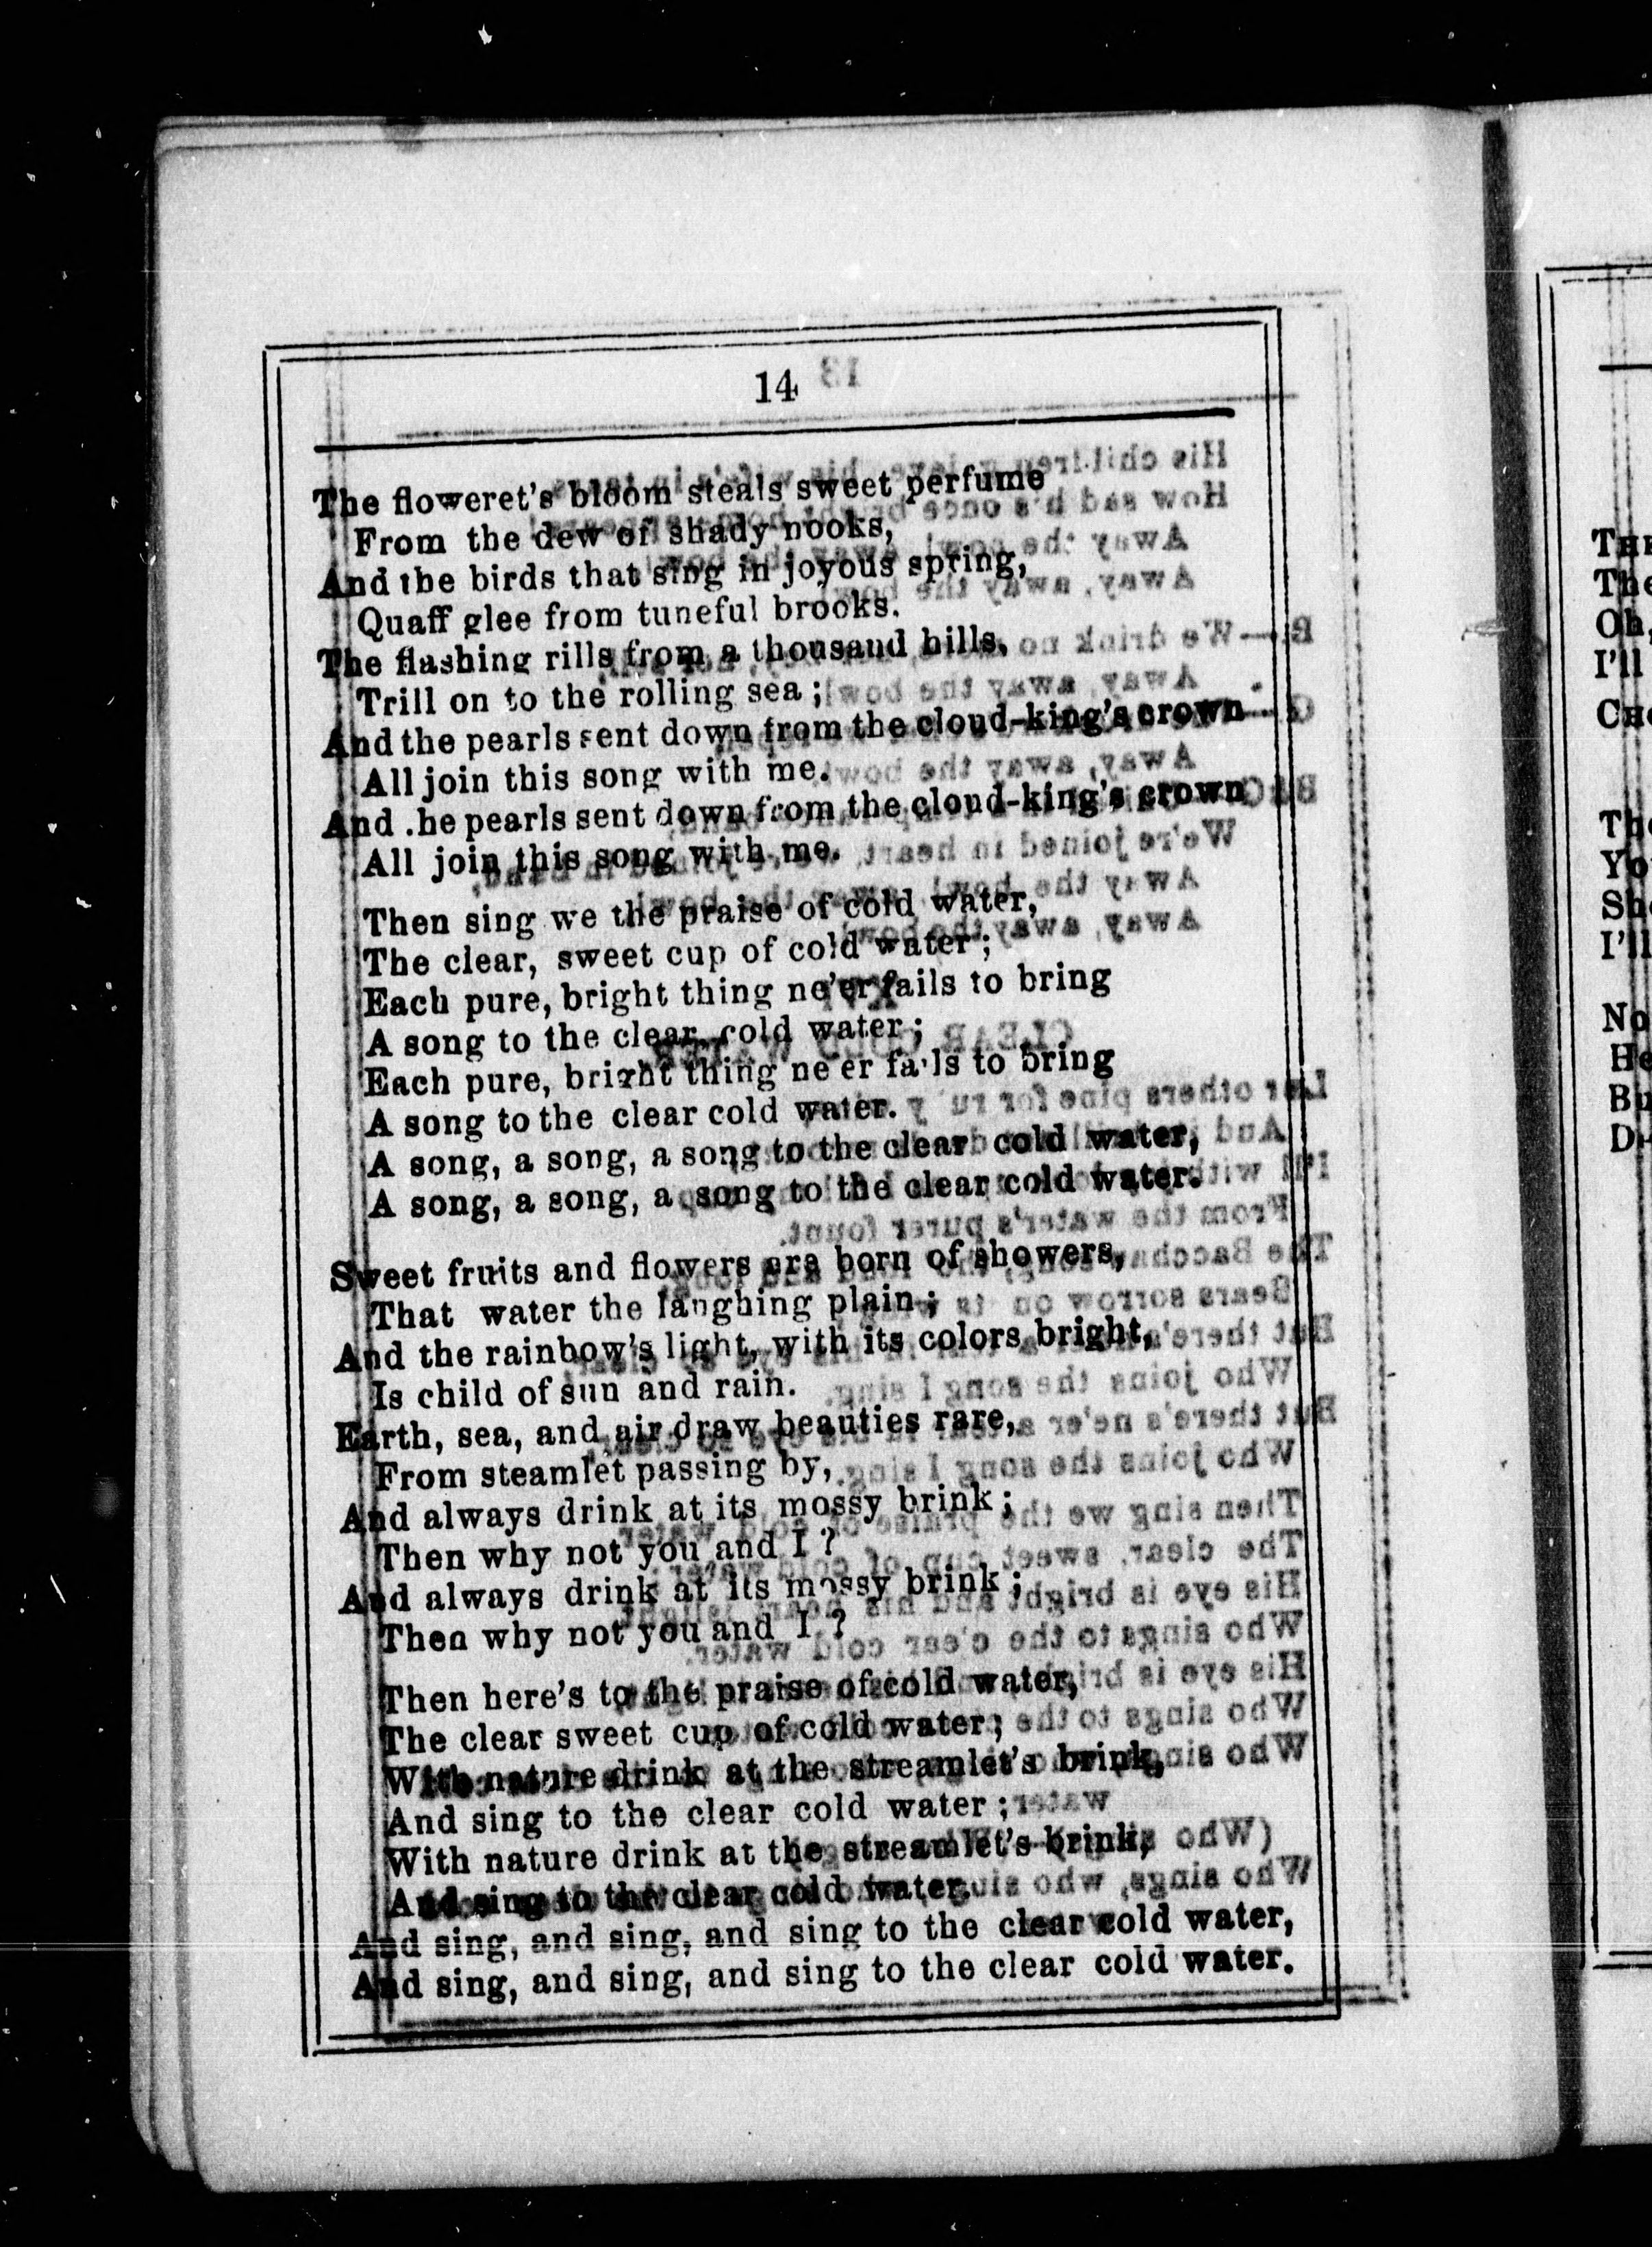 14
The floweret's bloom steals sweet perfume
From the dew of shady nooks,
And the birds that sing in joyous spring,
Quaff glee from tuneful brooks.
The flashing rills from a thousand hills,
Trill on to the rolling sea ;
And the pearls sent down from the cloud-king's crown
All join this song with me.
And .he pearls sent down from the cloud-king's crown
All join this song with me.
Then sing we the praise of cold water,
The clear, sweet cup of cold water ;
Each pure, bright thing ne'er fails to bring
A song to the clear, cold water ;
Each pure, bright thing ne'er fails to bring
A song to the clear cold water.
A song, a song, a song to the clear cold water,
A song, a song, a song to the clear cold water.
Sweet fruits and flowers are born of showers,
That water the laughing plain ;
And the rainbow's light, with its colors bright,
Is child of sun and rain.
Earth, sea, and air draw beauties rare,
From steamlet passing by,
And always drink at its mossy brink ;
Then why not you and I ?
And always drink at its mossy brink ;
Then why not you and I ?
Then here's to the praise of cold water,
The clear sweet cup of cold water ;
With nature drink at the streamlet's brink,
And sing to the clear cold water ;
With nature drink at the streamlet's brink,
And sing to the clear cold water.
And sing, and sing, and sing to the clear cold water,
And sing, and sing, and sing to the clear cold water.
The
Oh,
I'll
I'll
No
He